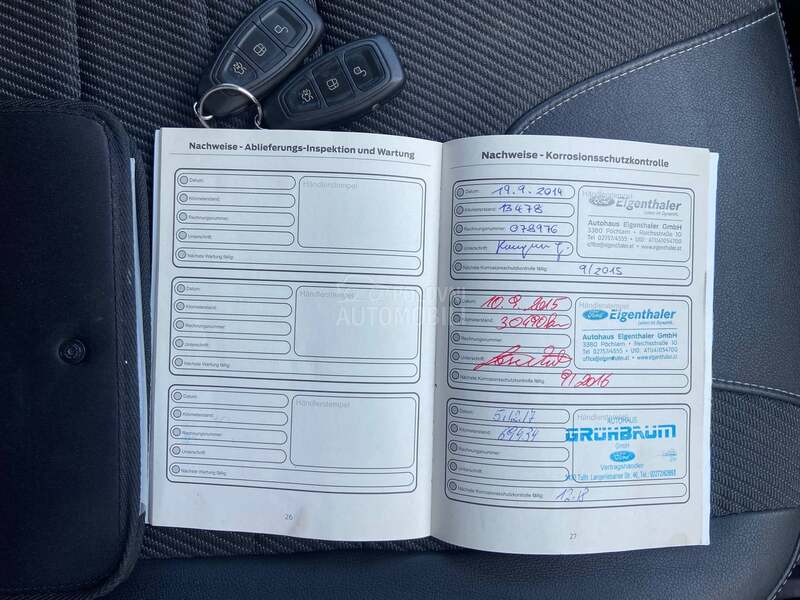 Nachweise - Ablieferungs-Inspektion und Wartung
Datum:
Kilometerstand:
Rechnungsnummer:
Unterschrift:
Nächste Wartung fällig:
Händlerstempel
Datum:
Kilometerstand:
Rechnungsnummer:
Unterschrift:
Nächste Wartung fällig:
Händlerstempel
Datum:
Kilometerstand:
Rechnungsnummer:
Unterschrift:
Nächste Wartung fällig:
Händlerstempel
26
Nachweise - Korrosionsschutzkontrolle
Datum: 19.9.2014
Kilometerstand: 13478
Rechnungsnummer: 078976
Unterschrift:
Nächste Korrosionsschutzkontrolle fällig: 9/2015
Händlerstempel
Ford Eigenthaler
Autohaus Eigenthaler GmbH
3380 Pöchlarn • Reichsstraße 10
Datum: 10.9.2015
Kilometerstand: 30490km
Rechnungsnummer:
Unterschrift:
Nächste Korrosionsschutzkontrolle fällig: 9/2016
Händlerstempel
Ford Eigenthaler
Autohaus Eigenthaler GmbH
3380 Pöchlarn • Reichsstraße 10
Datum: 5.12.17
Kilometerstand: 69934
Rechnungsnummer:
Unterschrift:
Nächste Korrosionsschutzkontrolle fällig: 12.18
Händlerstempel
AUTOHAUS
GRÜHBAUM
GmbH
Ford
Vertragshändler
27
AUTOMOBILI